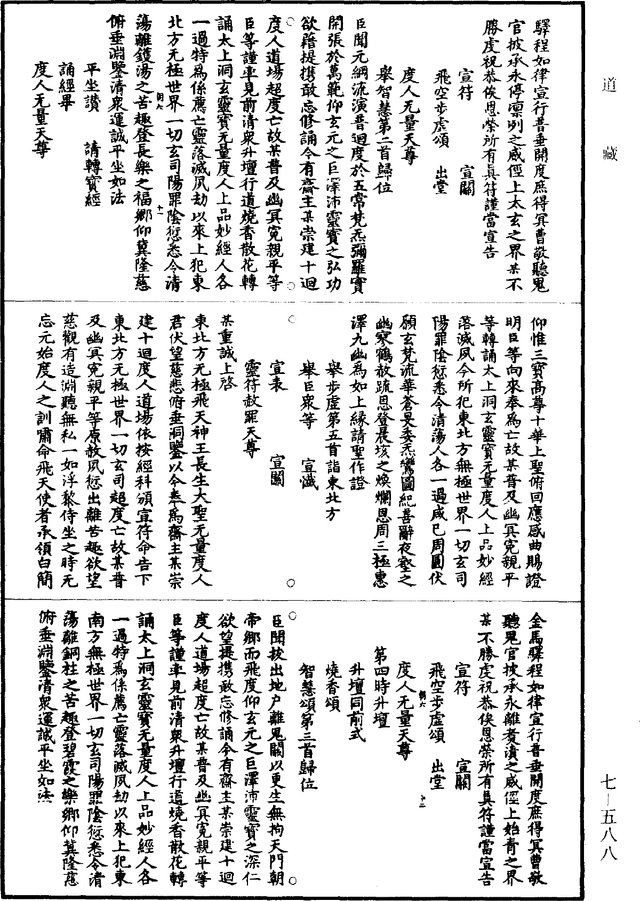 道藏
驛程如律宣行普垂開度庶得冥曹敬聽鬼
官披承永停凛冽之威徑上太玄之界某不
勝虔祝恭俟恩榮所有真符謹當宣告
宣符　宣關
飛空步虛頌　出堂
度人无量天尊
舉智慧第二首歸位
臣聞元綱流演普迴度於五常梵炁彌羅實
開張於萬範仰玄元之巨澤沛靈寶之弘功
欲藉提携敢忘修誦今有齋主某崇建十迴
度人道場超度亡故某普及幽冥寃親平等
臣等謹率見前清衆升壇行道燒香散花轉
誦太上洞玄靈寶无量度人上品妙經人各
一過特爲係薦亡靈落滅夙劫以來上犯東
北方无極世界一切玄司陽罪陰愆悉令清
蕩離鑊湯之苦趣登長樂之福鄉仰冀隆慈
俯垂淵鑒清衆運誠平坐如法
平坐讚　請轉寶經
誦經畢
度人无量天尊
仰惟三寶高尊十華上聖俯回應感曲賜證
明臣等向來奉爲亡故某普及幽冥寃親平
等轉誦太上洞玄靈寶无量度人上品妙經
落滅夙今所犯東北方無極世界一切玄司
陽罪陰愆悉令清蕩人各一過咸已周圓伏
願玄梵流華蒼旻委炁鸞圖紀善辭夜壑之
幽寥鶴赦疏恩登晨垓之煥爛恩周三極惠
澤九幽爲如上緣請聖作證
舉步虛第五首詣東北方
舉臣衆等　宣懺
宣表　宣關
靈符赦罪天尊
某重誠上啓
東北方无極飛天神王長生大聖无量度人
君伏望慈悲俯垂洞鑒以今奉爲齋主某崇
建十迴度人道場依按經科頒宣符命告下
東北方无極世界一切玄司超度亡故某普
及幽冥寃親平等原赦夙愆出離苦趣欲望
慈觀有造淵聽無私一如浮黎侍坐之時无
忘元始度人之訓肅命飛天使者承領白簡
金馬驛程如律宣行普垂開度庶得冥曹敬
聽鬼官披承永離煮潰之威徑上始青之界
某不勝虔祝恭俟恩榮所有真符謹當宣告
宣符　宣關
飛空步虛頌　出堂
度人无量天尊
第四時升壇
升壇同前式
燒香頌
智慧頌第三首歸位
臣聞拔出地户離鬼關以更生無拘天門朝
帝鄉而飛度仰玄元之巨澤沛靈寶之深仁
欲望提携敢忘修誦今有齋主某崇建十迴
度人道場超度亡故某普及幽冥寃親平等
臣等謹率見前清衆升壇行道燒香散花轉
誦太上洞玄靈寶无量度人上品妙經人各
一過特爲係薦亡靈落滅夙劫以來上犯東
南方无極世界一切玄司陽罪陰愆悉令清
蕩離銅柱之苦趣登碧霞之樂鄉仰冀隆慈
俯垂淵鑒清衆運誠平坐如法
七—五八八